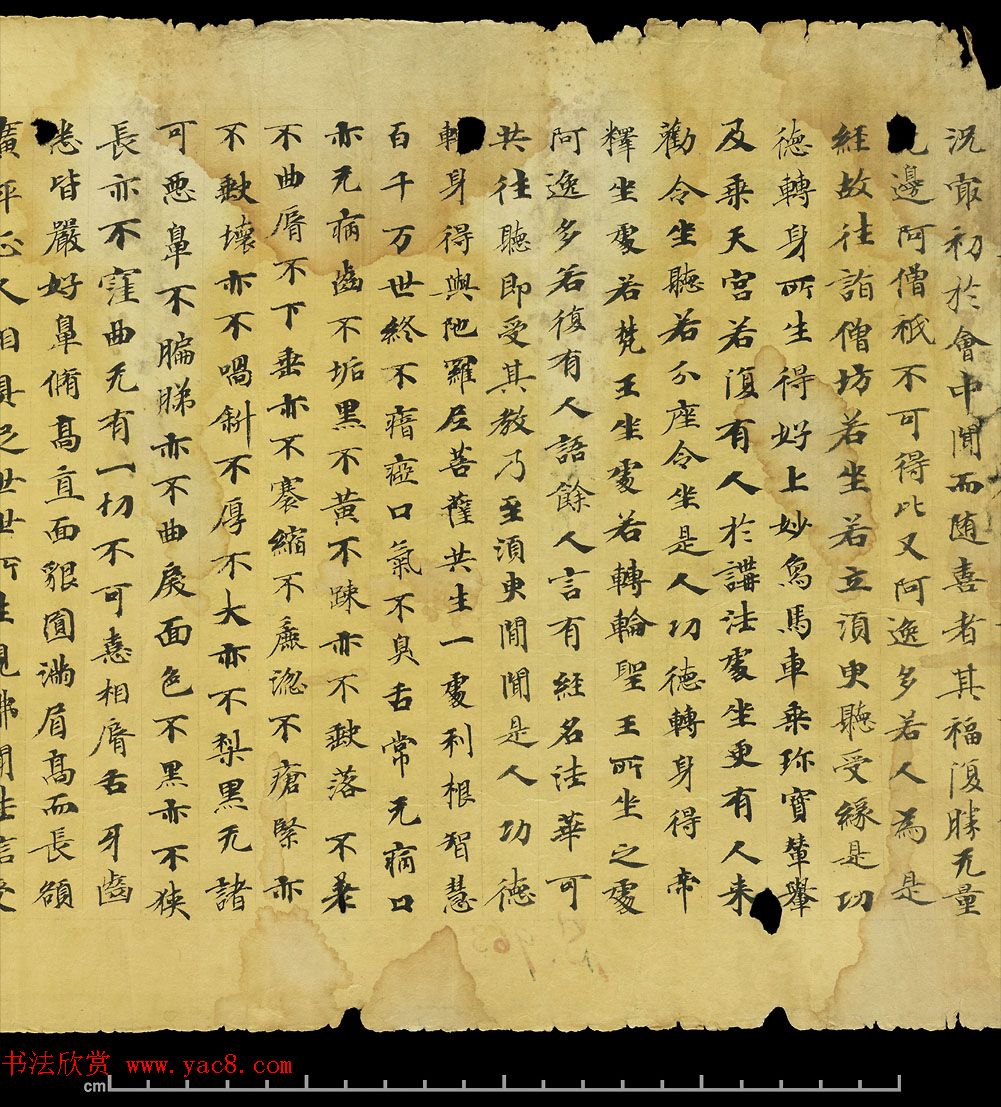 況冣初於會中聞而随喜者其福復勝无量
邊阿僧祇不可得比又阿逸多若人為是
經故往詣僧坊若坐若立湏臾聽受緣是功
德轉身所生得好上妙象馬車乗珎寳輦轝
及乗天宫若復有人於講法處坐更有人来
勸令坐聽若分座令坐是人功德轉身得帝
釋坐處若梵王坐處若轉輪聖王所坐之處
阿逸多若復有人語餘人言有經名法華可
共往聽即受其教乃至湏臾間聞是人功德
轉身得與陁羅尼菩薩共生一處利根智慧
百千万世終不瘖瘂口氣不臭舌常无病口
亦无病齒不垢黑不黄不踈亦不缺落不差
不曲脣不下垂亦不褰縮不麁澁不瘡緊亦
不缺壞亦不喎斜不厚不大亦不梨黒无諸
可惡鼻不匾㔸亦不曲戾面色不黒亦不狹
長亦不窪曲无有一切不可憙相脣舌牙齒
悉皆嚴好鼻脩髙直面貌圓滿眉髙而長額
廣平正人相具足世世所生見佛聞法信受
書法欣赏 www.yac8.com
cm